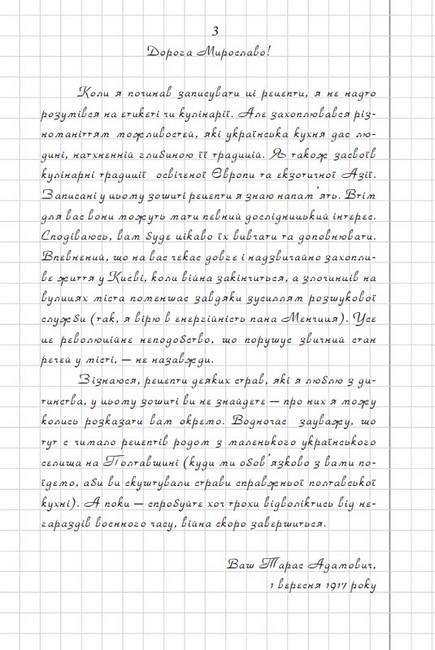 3
Дорога Мирославо!
Коли я починав записувати ці рецепти, я не надто
розумівся на етикеті чи кулінарії. Але захоплювався різ-
номаніттям можливостей, які українська кухня дає лю-
дині, натхненній глибиною її традицій. Я також засвоїв
кулінарні традиції освіченої Європи та екзотичної Азії.
Записані у цьому зошиті рецепти я знаю напам’ять. Втім
для вас вони можуть мати певний дослідницький інтерес.
Сподіваюсь, вам буде цікаво їх вивчати та доповнювати.
Впевнений, що на вас чекає довге і надзвичайно захопли-
ве життя у Києві, коли війна закінчиться, а злочинців на
вулицях міста поменшає завдяки зусиллям розшукової
служби (так, я вірю в енергійність пана Менчиця). Усе
це революційне неподобство, що порушує звичний стан
речей у місті, — не назавжди.
Зізнаюся, рецепти деяких страв, які я люблю з ди-
тинства, у цьому зошиті ви не знайдете — про них я можу
колись розказати вам окремо. Водночас зауважу, що
тут є чимало рецептів родом з маленького українського
селища на Полтавщині (куди ми обов’язково з вами по-
їдемо, аби ви скуштували страви справжньої полтавської
кухні). А поки — спробуйте хоч трохи відволіктись від не-
гараздів воєнного часу, війна скоро завершиться.
Ваш Тарас Адамович,
1 вересня 1917 року